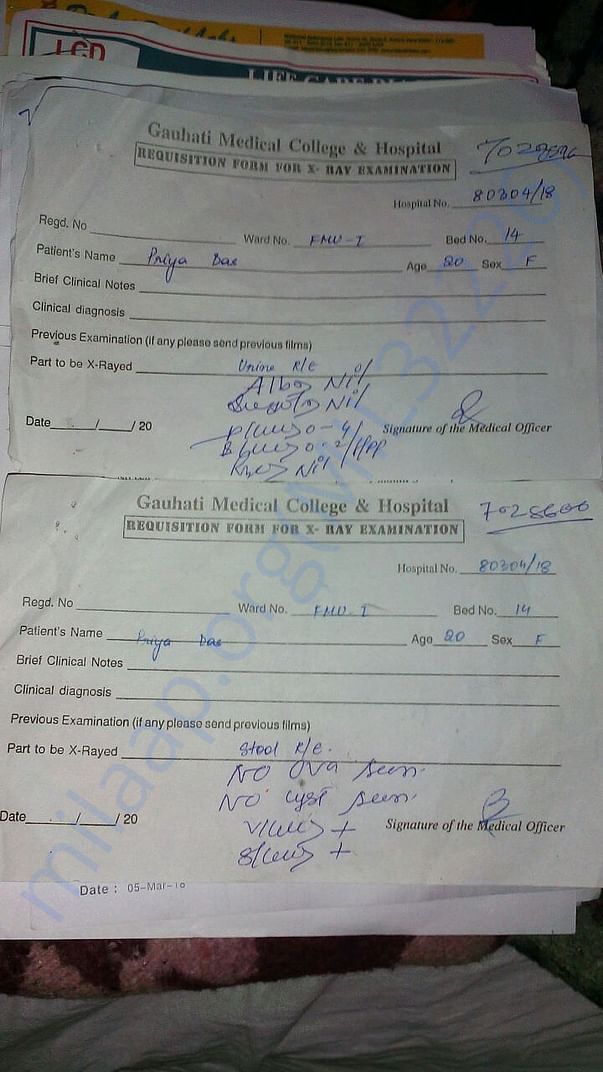 LCD
Gauhati Medical College & Hospital
REQUISITION FORM FOR X- RAY EXAMINATION
Hospital No. 80304/18
Regd. No Ward No. FMU-I Bed No. 14
Patient's Name Priya Das Age 20 Sex F
Brief Clinical Notes
Clinical diagnosis
Previous Examination (if any please send previous films)
Part to be X-Rayed Urine R/E
Nil
Nil
Date / / 20 Signature of the Medical Officer
Nil
Gauhati Medical College & Hospital 7028600
REQUISITION FORM FOR X- RAY EXAMINATION
Hospital No. 80304/18
Regd. No Ward No. FMU-I Bed No. 14
Patient's Name Priya Das Age 20 Sex F
Brief Clinical Notes
Clinical diagnosis
Previous Examination (if any please send previous films)
Part to be X-Rayed Stool R/E.
NO Ova seen.
NO cyst seen.
Date / / 20 Signature of the Medical Officer
Date : 05-Mar-18
milaap.org